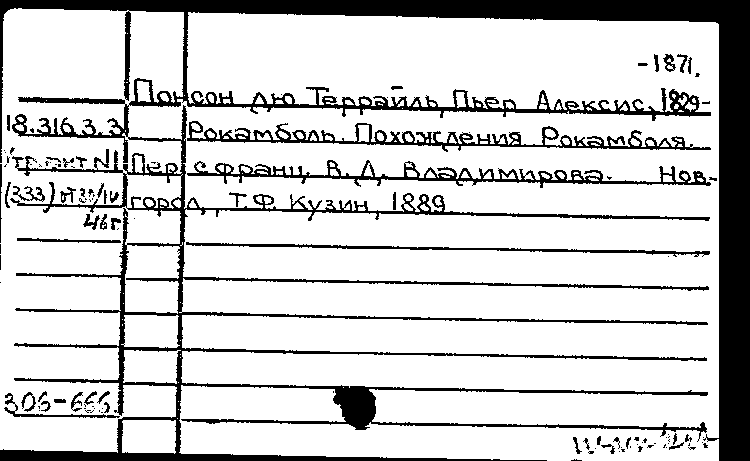 -1871.
Понсон дю Террайль, Пьер Алексис, 1829-
18.316.3.3 Рокамболь. Похождения Рокамболя.
Утр. акт №1 Пер. с франц. В. Д. Владимирова. Нов-
(333) от 30/IV город, Т.Ф. Кузин, 1889
46г
306-666.